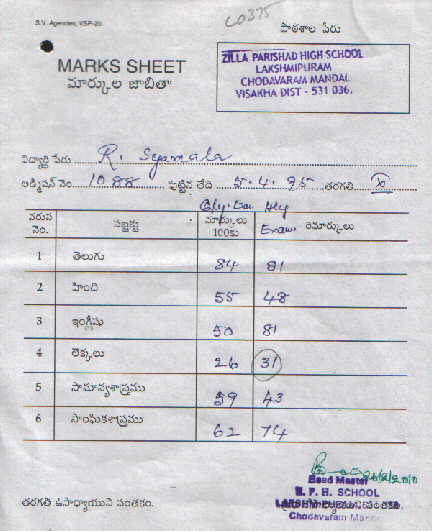 S.V. Agencies, VSP-20.
L0375
MARKS SHEET
మార్కుల జాబితా
పాఠశాల పేరు
ZILLA PARISHAD HIGH SCHOOL
LAKSHMIPURAM
CHODAVARAM MANDAL
VISAKHA DIST - 531 036.
విద్యార్థి పేరు R. Syamala
అడ్మిషన్ నెం. 1088 పుట్టిన తేది 5.4.95 తరగతి X
వరుస నెం. సబ్జక్టు మార్కులు 100కు Exam. రిమార్కులు
1 తెలుగు 84 81
2 హింది 55 48
3 ఇంగ్లీషు 50 81
4 లెక్కలు 26 31
5 సామాన్యశాస్త్రము 59 43
6 సాంఘికశాస్త్రము 62 74
Head Master
Z. P. H. SCHOOL
LAKSHMIPURAM
Chodavaram Mandal
తరగతి ఉపాధ్యాయుని సంతకం.